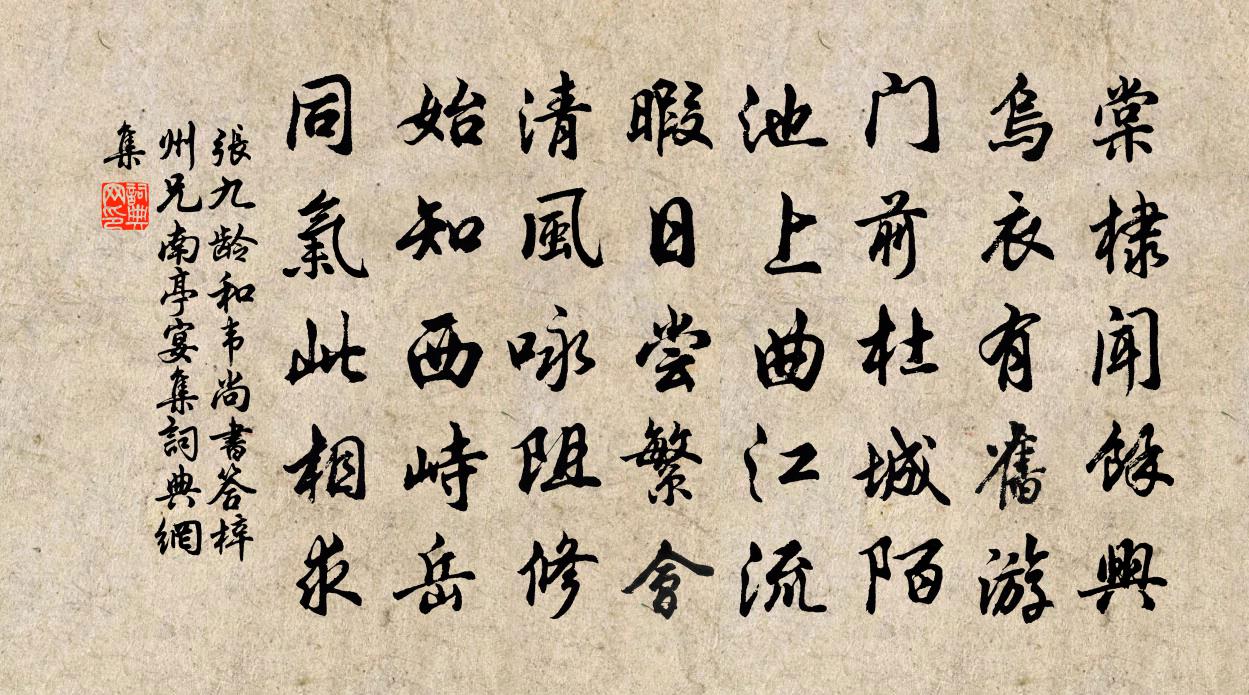 棠棣聞餘興
烏衣有舊游
门前杜城陌
池上曲江流
暇日尝繁會
清風咏阻修
始知西峙岳
同氣此相求
張九龄和韦尚書答梓
州兄南亭宴集詞典網
集
詞典
网印